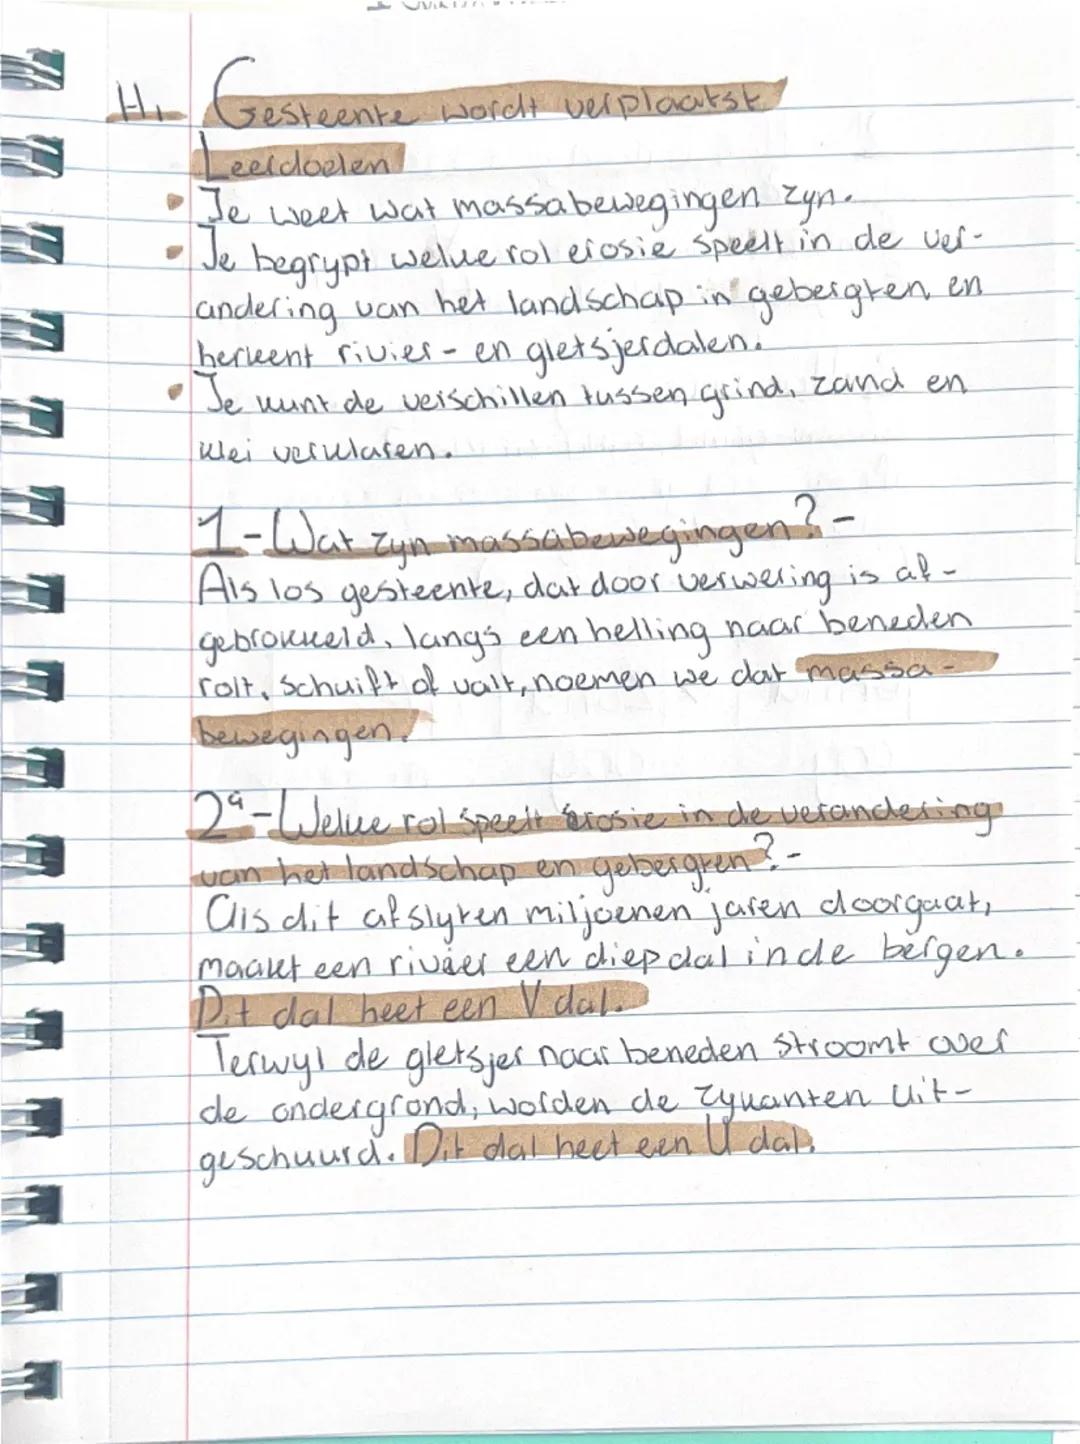 H1 Gesteente wordt verplaatst
Leerdoelen
Je weet wat massabewegingen zyn.
Je begrypt welke rol erosie speelt in de ver-
andering van het landschap in gebergten en
herkent rivier- en gletsjerdalen.
Je kunt de verschillen tussen grind, zand en
klei verklaren.
1-Wat zyn massabewegingen?-
Als los gesteente, dat door verwering is af-
gebrokkeld, langs een helling naar beneden
rolt, schuift of valt, noemen we dat massa-
bewegingen.
2a-Welke rol speelt erosie in de verandering
van het landschap en gebergten?-
Als dit afslyten miljoenen jaren doorgaat,
maakt een rivier een diep dal in de bergen.
Dit dal heet een V dal.
Terwyl de gletsjer naar beneden stroomt over
de ondergrond, worden de zykanten uit-
geschuurd. Dit dal heet een U dal.